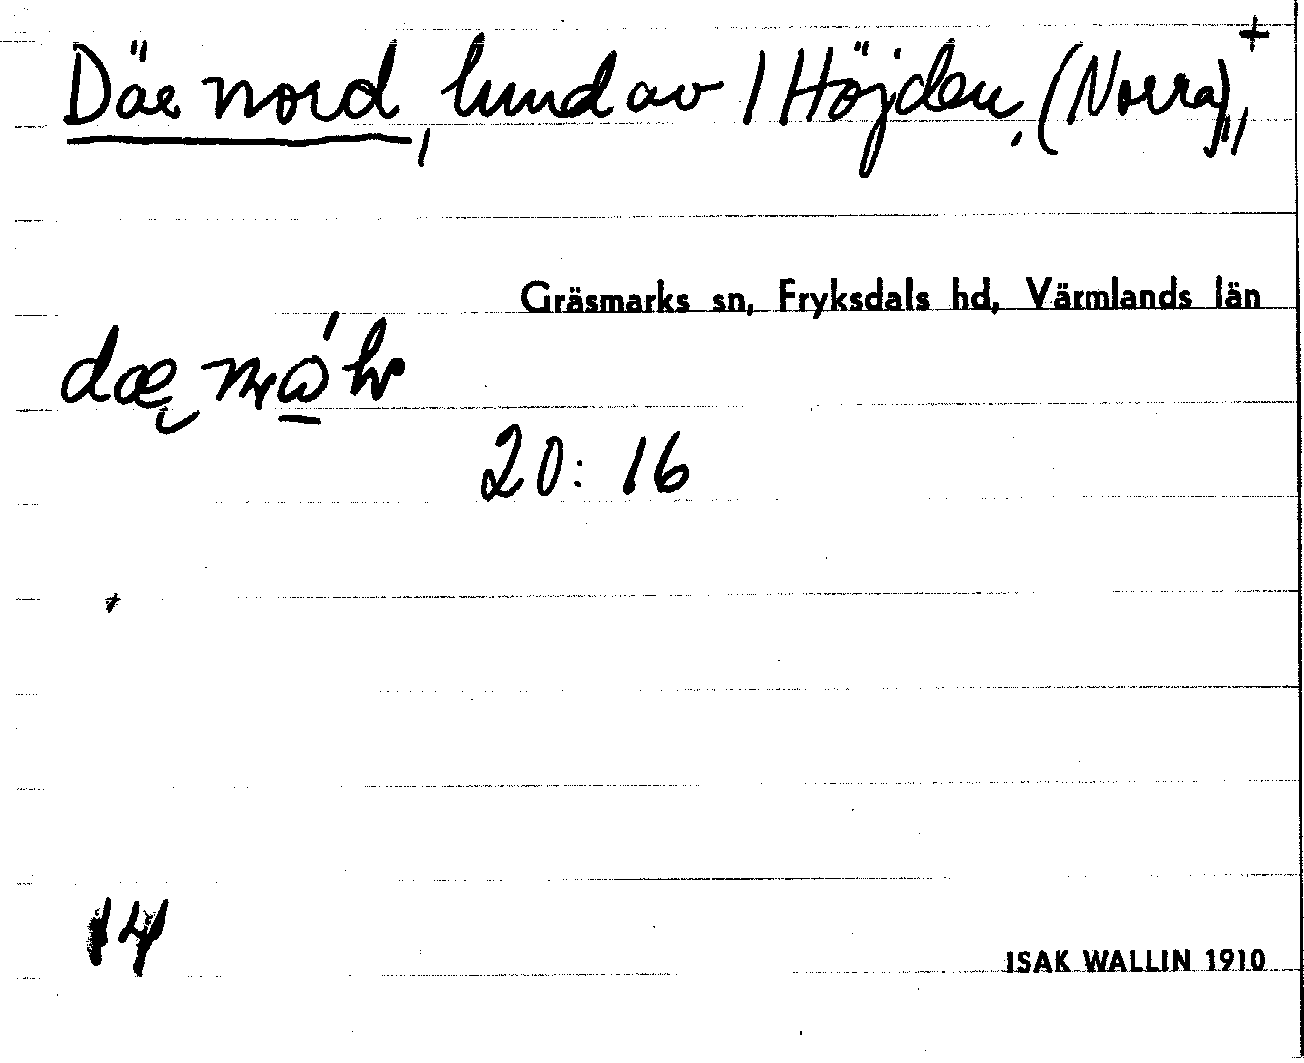 +
Där nord, lund av 1 Höjden, (Norra),,
Gräsmarks sn, Fryksdals hd, Värmlands län
20: 16
14
ISAK WALLIN 1910